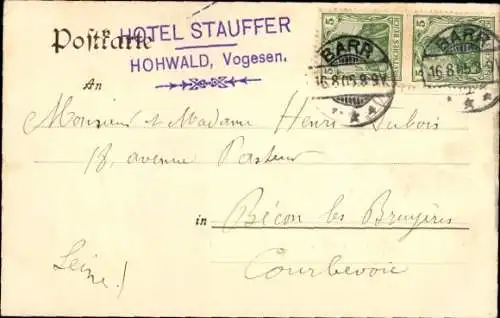 Postkarte
HOTEL STAUFFER
HOHWALD, Vogesen.
5
5
DEUTSCHES REICH
BARR
16.8.05.8-9V
BARR
16.8.05.8-9V
An
Monsieur et Madame Henri Dubois
18, avenue Pasteur
in Bécon les Bruyères
Seine! Courbevoie